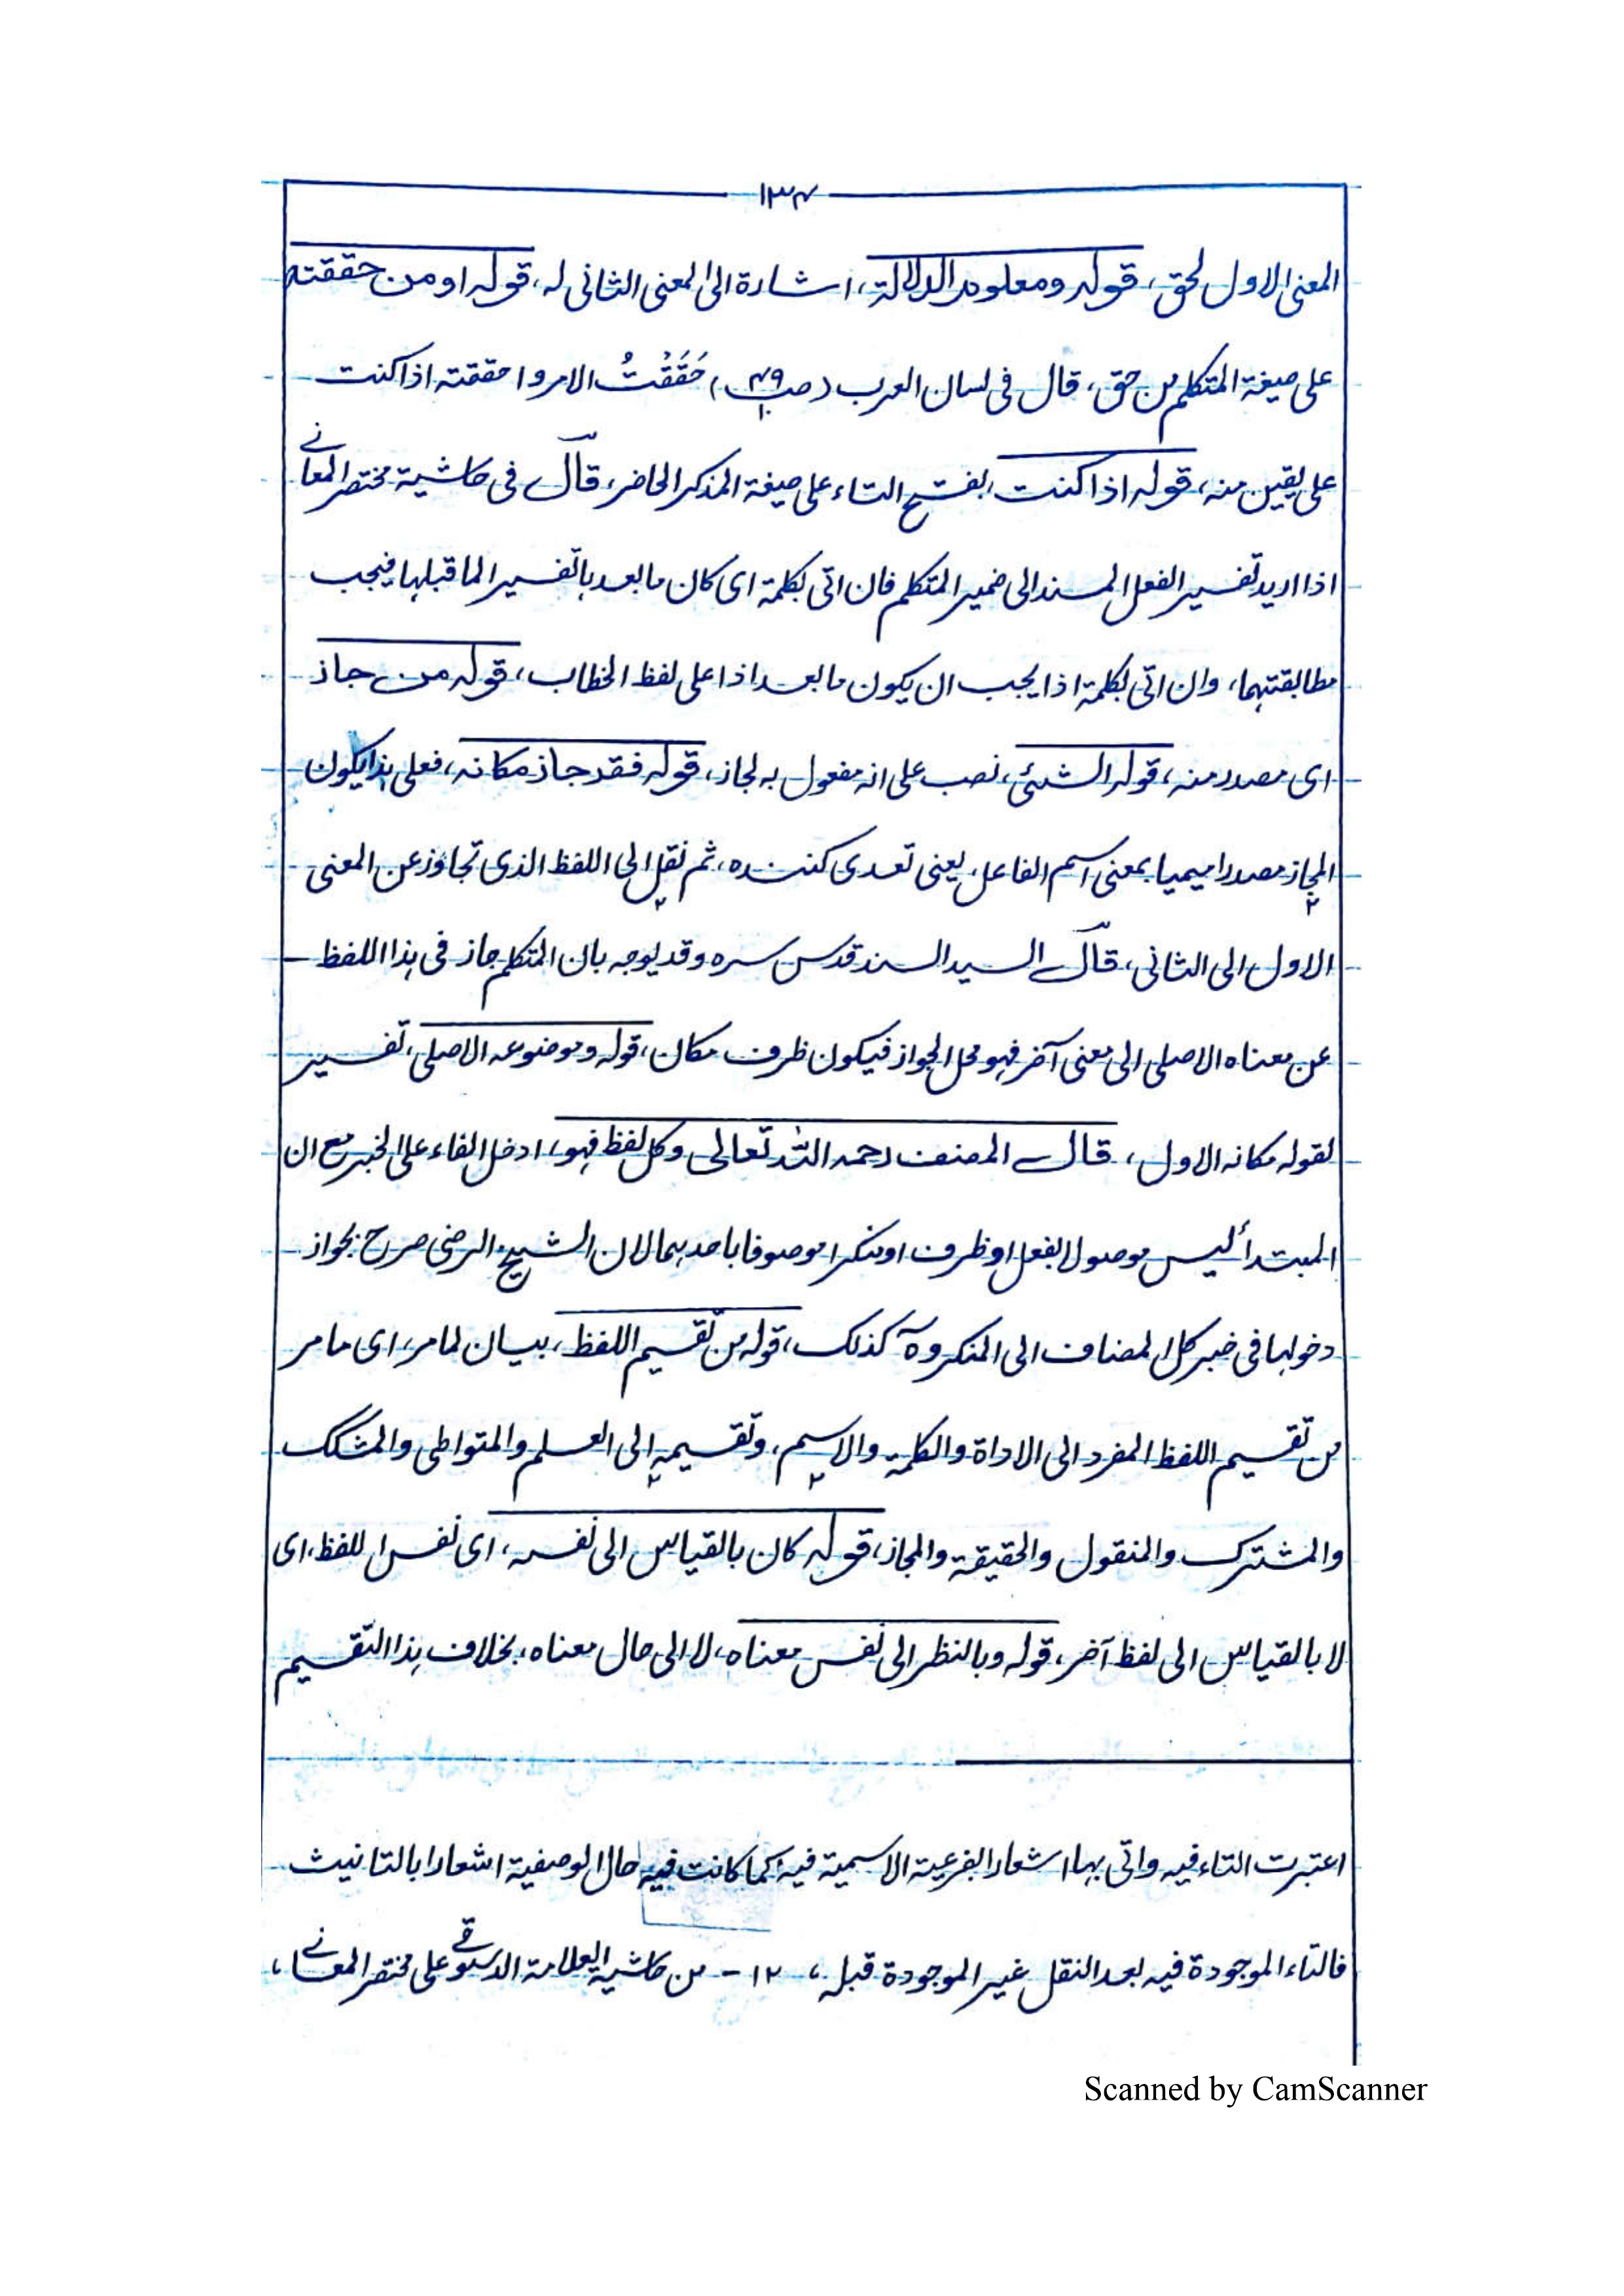 ١٣٤
المعنى الاول لحق، قوله ومعلوم الدلالة، اشارة الى المعنى الثانى له، قوله او من حققته
على صيغة المتكلم من حق، قال فى لسان العرب (ص ٤٩/١٠) حَقَقْتُ الامر واحققته اذا كنت
على يقين منه، قوله اذا كنت، بفتح التاء على صيغة المذكر الحاضر، قال فى حاشية مختصر المعانى
اذا اريد تفسير الفعل المسند الى ضمير المتكلم فان اتى بكلمة اى كان ما بعدها تفسيرا لما قبلها فيجب
مطابقتهما، وان اتى بكلمة اذا يجب ان يكون ما بعد اذا على لفظ الخطاب، قوله من جاز
اى مصدر منه، قوله الشئى، نصب على انه مفعول به لجاز، قوله فقد جاز مكانه، فعلى هذا يكون
المجاز مصدرا ميميا بمعنى اسم الفاعل، يعنى تعدى كننده، ثم نقل الى اللفظ الذى تجاوز عن المعنى
الاول الى الثانى، قال السيد السند قدس سره وقد يوجه بان المتكلم جاز فى هذا اللفظ
عن معناه الاصلى الى معنى آخر فهو محل الجواز فيكون ظرف مكان، قوله وموضوعه الاصلى، تفسير
لقوله مكانه الاول، قال المصنف رحمه الله تعالى وكل لفظ فهو، ادخل الفاء على الخبر مع ان
المبتدأ ليس موصولا بفعل او ظرف او منكرا موصوفا باحدهما لان الشيخ الرضى صرح بجواز
دخولها فى خبر كل المضاف الى المنكر وه‍ٓ كذلك، قوله من تقسيم اللفظ، بيان لما مر، اى ما مر
من تقسيم اللفظ المفرد الى الاداة والكلمة والاسم، وتقسيمه الى العلم والمتواطى والمشكك
والمشترك والمنقول والحقيقة والمجاز، قوله كان بالقياس الى نفسه، اى نفس اللفظ، اى
لا بالقياس الى لفظ آخر، قوله وبالنظر الى نفس معناه، لا الى حال معناه، بخلاف هذا التقسيم
اعتبرت التاء فيه واتى بها اشعارا بفرعية الاسمية فيه كما كانت فيه حال الوصفية اشعارا بالتانيث
فالتاء الموجودة فيه بعد النقل غير الموجودة قبله، ١٢ - من حاشية العلامة الدسوقى على مختصر المعانى،
Scanned by CamScanner